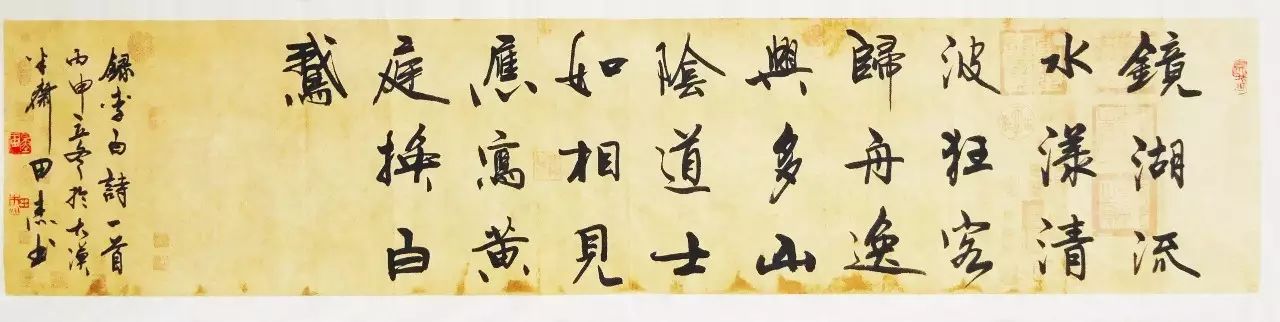 鏡湖流
水漾清
波狂客
歸舟逸
興多山
陰道士
如相見
應寫黃
庭換白
鵞
錄李白詩一首
丙申立冬於大漠
齋田杰书